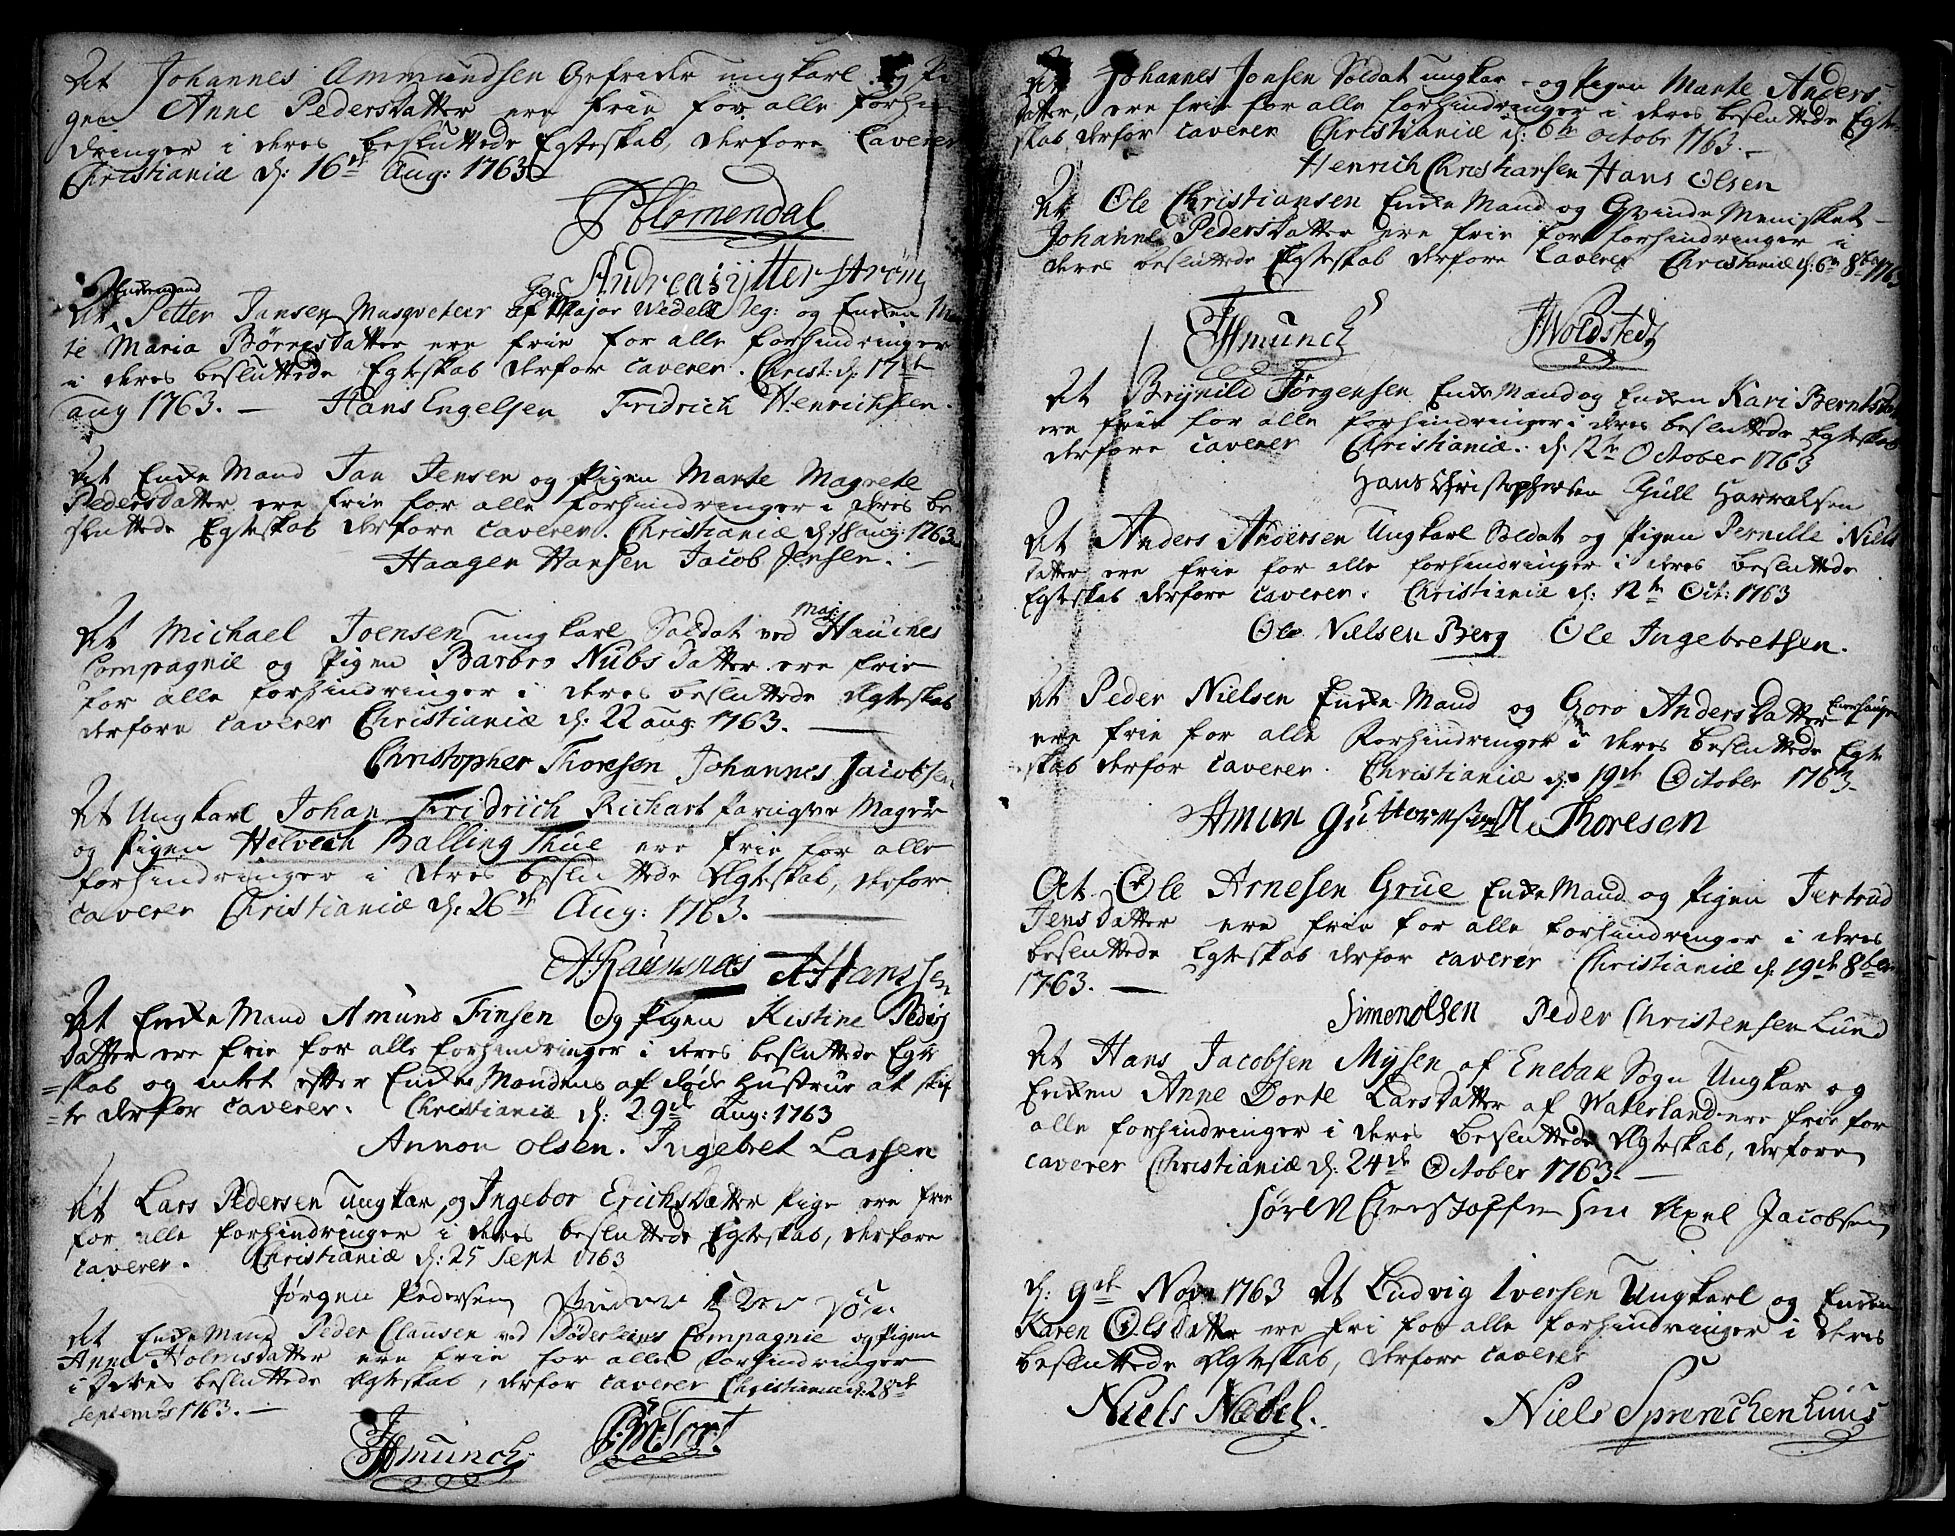 At Johannes Ammundsen Gefreider ungkarl og Pi
gen Anne Pedersdatter ere frie for alle forhin
dringer i deres besluttede Egteskab, derfore Caverer
Christiania d: 16de Aug: 1763
P Blomendal
Andreas ytterstrøm
Enckemand
At Petter Jansen Musqveteer af Major Wedels Reg: og Encken
te Maria Børresdatter ere frie for alle forhindringer
i deres besluttede Egteskab derfor caverer. Christ: d: 17de
aug 1763. — Hans Engelsen Fridrich Henrichsen.
At Encke Mand Jan Jensen og Pigen Marte Magrete
Pedersdatter ere frie for alle forhindringer i deres be
sluttede Egteskab derfore caverer. Christianiæ d: 18 aug: 1763
Haagen Hansen Jacob Jensen.
At Michael Joensen ungkarl Soldat ved Maj: Hauches
Compagnie og Pigen Barbro Nubsdatter ere frie
for alle forhindringer i deres besluttede Ægteskab
derfore caverer Christianiæ d: 22 aug: 1763.
Christopher Thoresen Johannes Jacobsen
At Ungkarl Johan Fridrich Richart Mager
og Pigen Helvech Balling Thue ere frie for alle
forhindringer i deres besluttede Ægteskab, derfore
caverer Christianiæ d: 26de Aug: 1763.
A Hanssen
At Encke Mand Amund Finsen og Pigen Kistine Peders
datter ere frie for alle forhindringer i deres besluttede Egte
skab og intet efter Encke Mandens af døde Hustrue at skif
te derfor caverer. Christianiæ d: 29de aug: 1763
Annon olsen. Ingebret Larsen
At Lars Pedersen ungkar, og Ingebor Erichsdatter Pige ere frie
for alle forhindringer i deres besluttede Egteskab, derfore
caverer. Christianiæ d: 25 Sept 1763
Jørgen Pedersen
At Encke Mand Peder Clausen ved Compagnie og Pigen
Anne Holmsdatter ere frie for alle forhindringer
i deres besluttede Ægteskab, derfor caverer Christianiæ d: 28de
Septembr 1763. —
Munch
At Johannes Jonsen Soldat ungkar og Pigen Marte Anders
datter, ere frie for alle forhindringer i deres besluttede Egte
skab derfor caverer Christianiæ d: 6te octobr 1763. —
Henrich Christiansen Hans Olsen
At Ole Christiansen Encke Mand og Qvinde Mennisket
Johanne Pedersdatter ere frie for forhindringer i
deres besluttede Egteskab derfore Caverer Christianiæ d: 6te 8br 1763
Munch Woldsted
At Brynild Jørgensen Encke Mand og Encken Kari Berntsdatter
ere frie for alle forhindringer i deres besluttede Egteskab
derfore caverer Christianiæ. d. 12te October 1763
Hans Christophersen Gull Harralsen
At Anders Andersen Ungkarl Soldat og Pigen Pernille Niels
datter ere frie for alle forhindringer i deres besluttede
Egteskab derfore caverer. Christianiæ d: 12te Oct: 1763
Ole Nielsen Berg Ole Ingebretsen.
At Peder Nielsen Encke Mand og Goro Andersdatter
ere frie for alle Forhindringer i deres besluttede Egte
skab derfor caverer. Christianiæ d: 19de October 1763.
Amun Guttormsen Ole Thoresen
At Ole Arnesen Grue Encke Mand og Pigen Jertrud
Jensdatter ere frie for alle forhindringer i deres
besluttede Egteskab derfor caverer Christianiæ d: 19de 8ber
1763. —
Simen olsen Peder Christensen Lund
At Hans Jacobsen Mysen af Enebak Sogn Ungkar og
Encken Anne Dorte Larsdatter af Wakerland ere frie for
alle forhindringer i deres besluttede Ægteskab, derfore
caverer Christianiæ d: 24de October 1763. —
Axel Jacobsen
d: 9de Novr 1763 At Ludvig Iversen Ungkarl og Encken
Karen Olsdatter ere fri for alle forhindringer i deres
besluttede Ægteskab, derfore caverer
Niels Nebel. Niels Sprenchenhuus